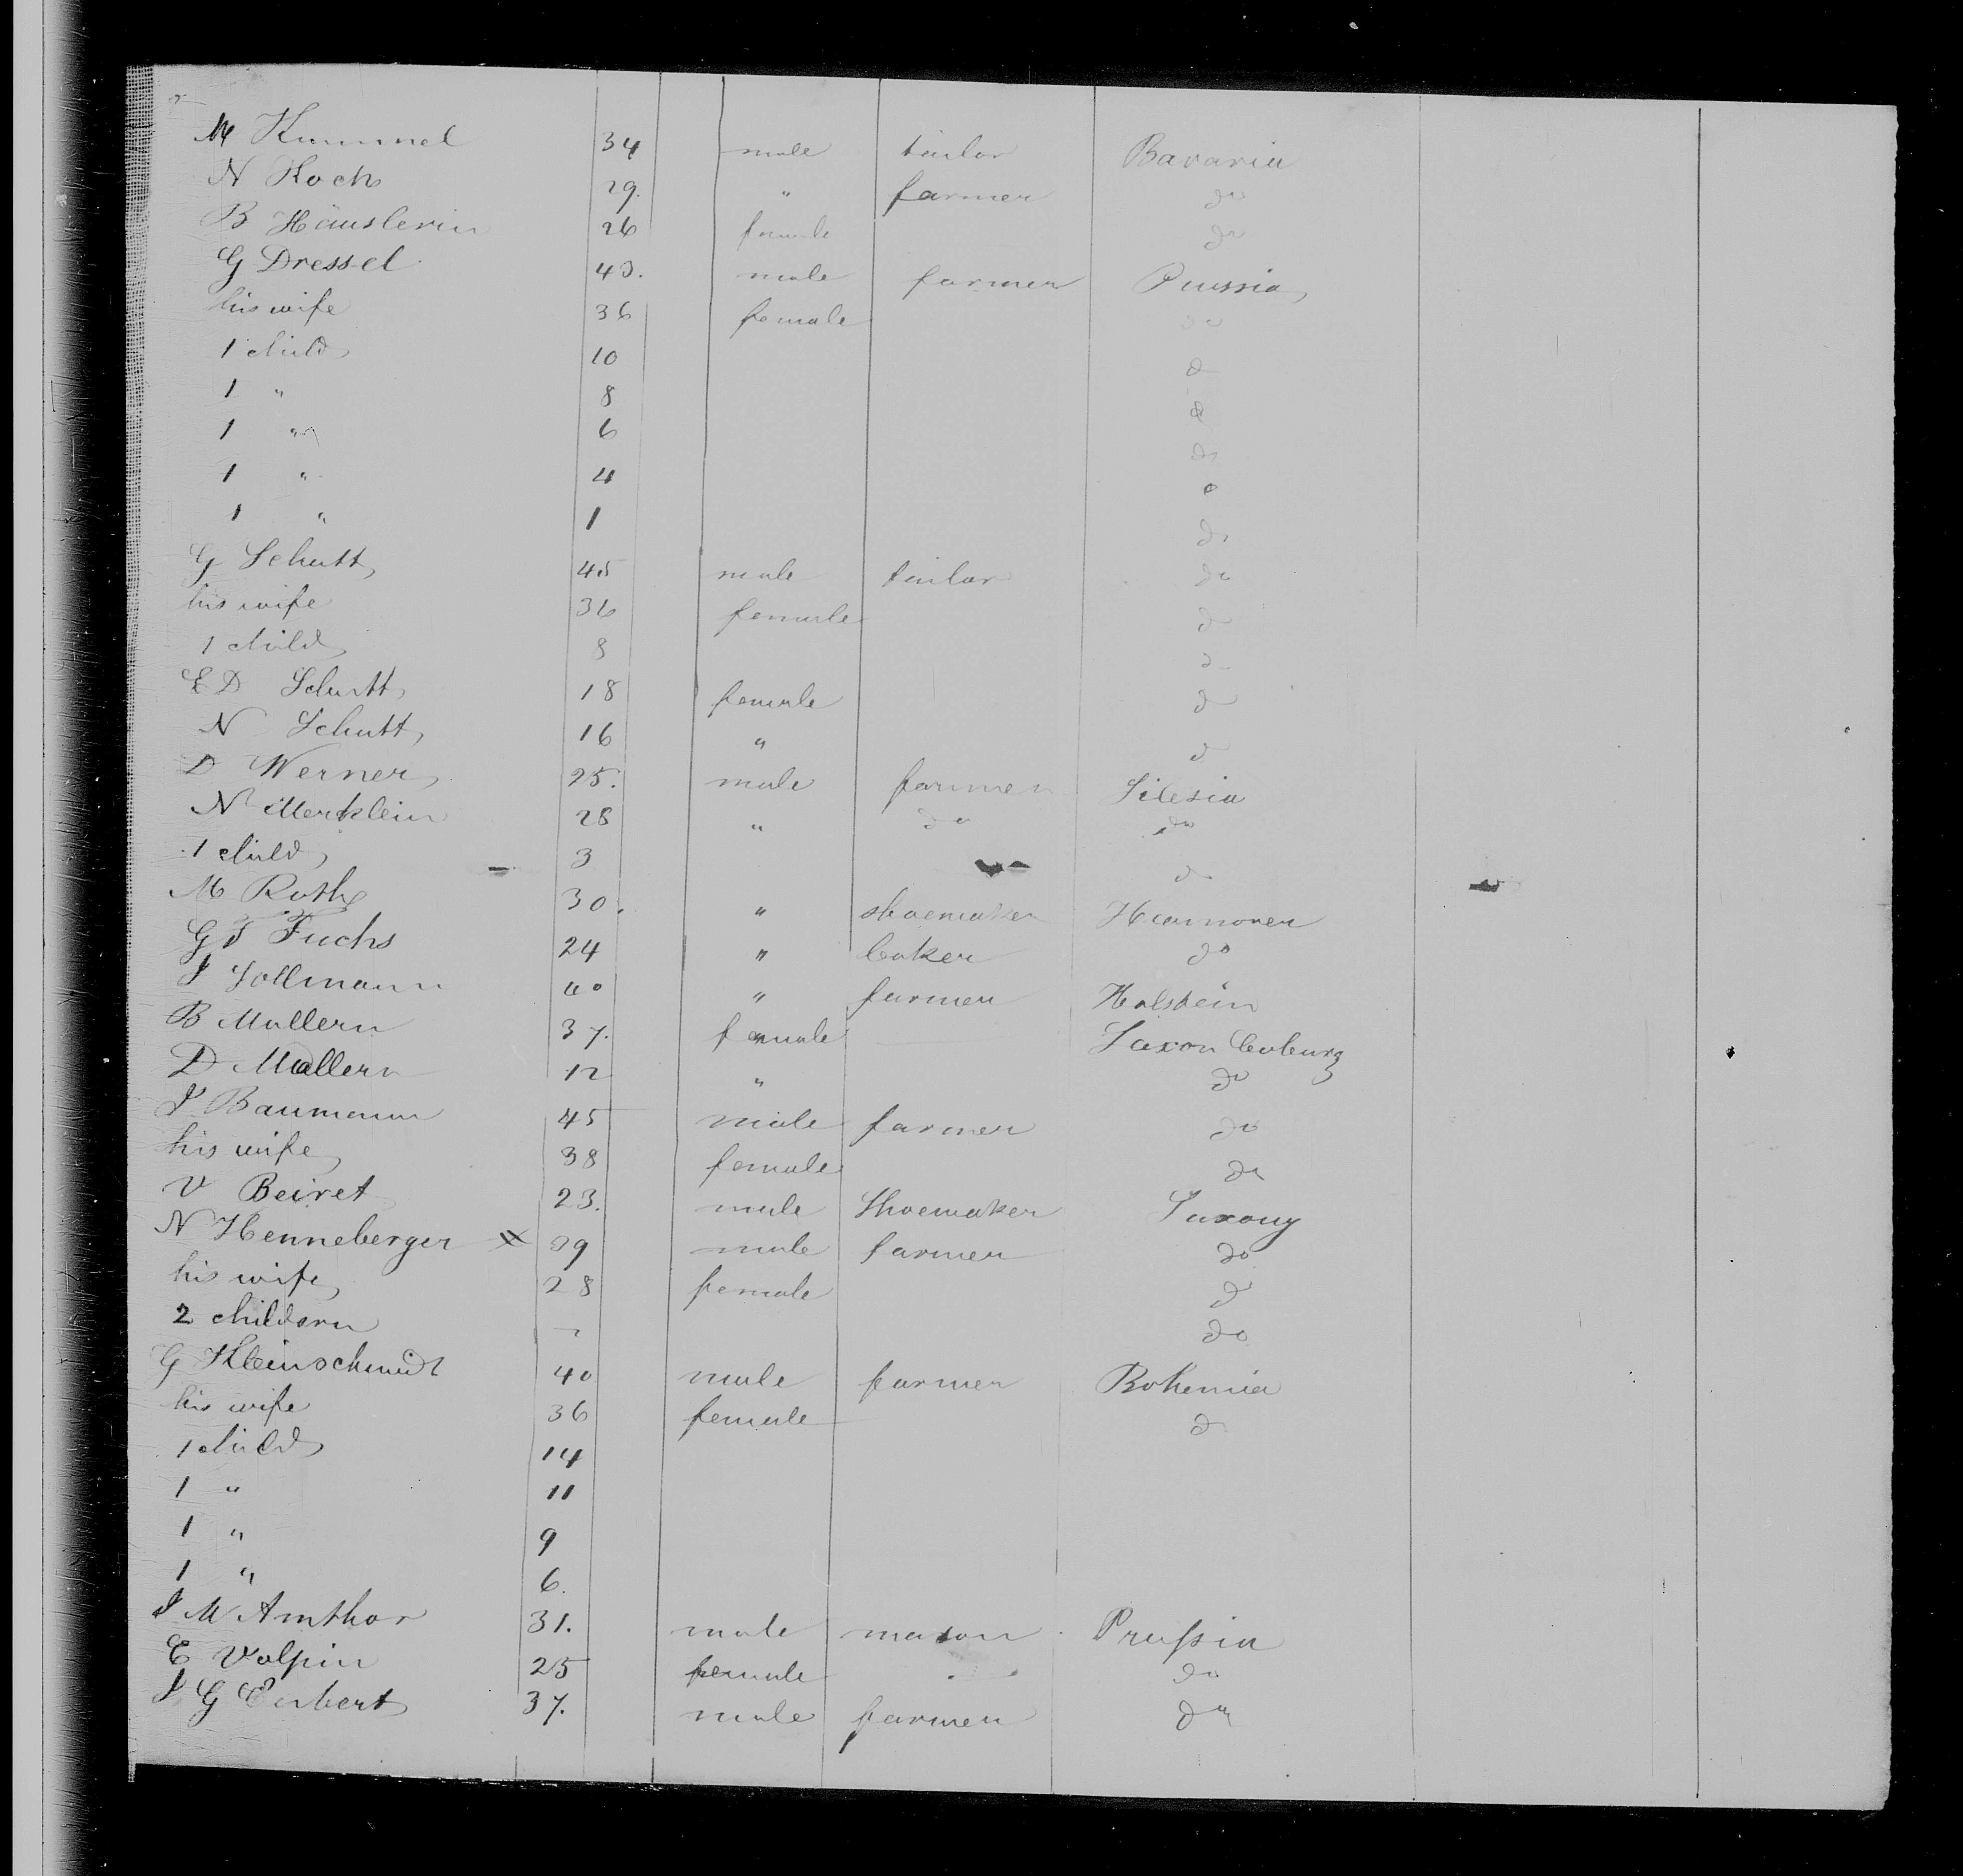 M Kummel 34 male tailor Bavaria
N Koch 29. " farmer do
B Häuslerin 26 female do
G Dressel 43. male farmer Prussia
his wife 36 female do
1 child 10 d
1 " 8 d
1 " 6 do
1 " 4 o
1 " 1 do
G Schutt 45 male tailor do
his wife 36 female d
1 child 8 d
E D Schutt 18 female d
N Schutt 16 " d
D Werner 25. male farmer Silesia
N Merklein 28 " do do
1 child 3 d
M Roth 30. " shoemaker Hannover
G F Fuchs 24 " baker do
J Sollmann 40 " farmer Holstein
B Mullern 37. female Saxon Coburg
D Mullern 12 " do
J Baumann 45 male farmer do
his wife 38 female do
V Beiret 23. male Shoemaker Saxony
N Henneberger x 39 male farmer do
his wife 28 female d
2 childern – do
G Kleinschmidt 40 male farmer Bohemia
his wife 36 female d
1 child 14
1 " 11
1 " 9
1 " 6.
J M Amthor 31. male mason Prussia
E Volpin 25 female do
J G 37. male farmer do